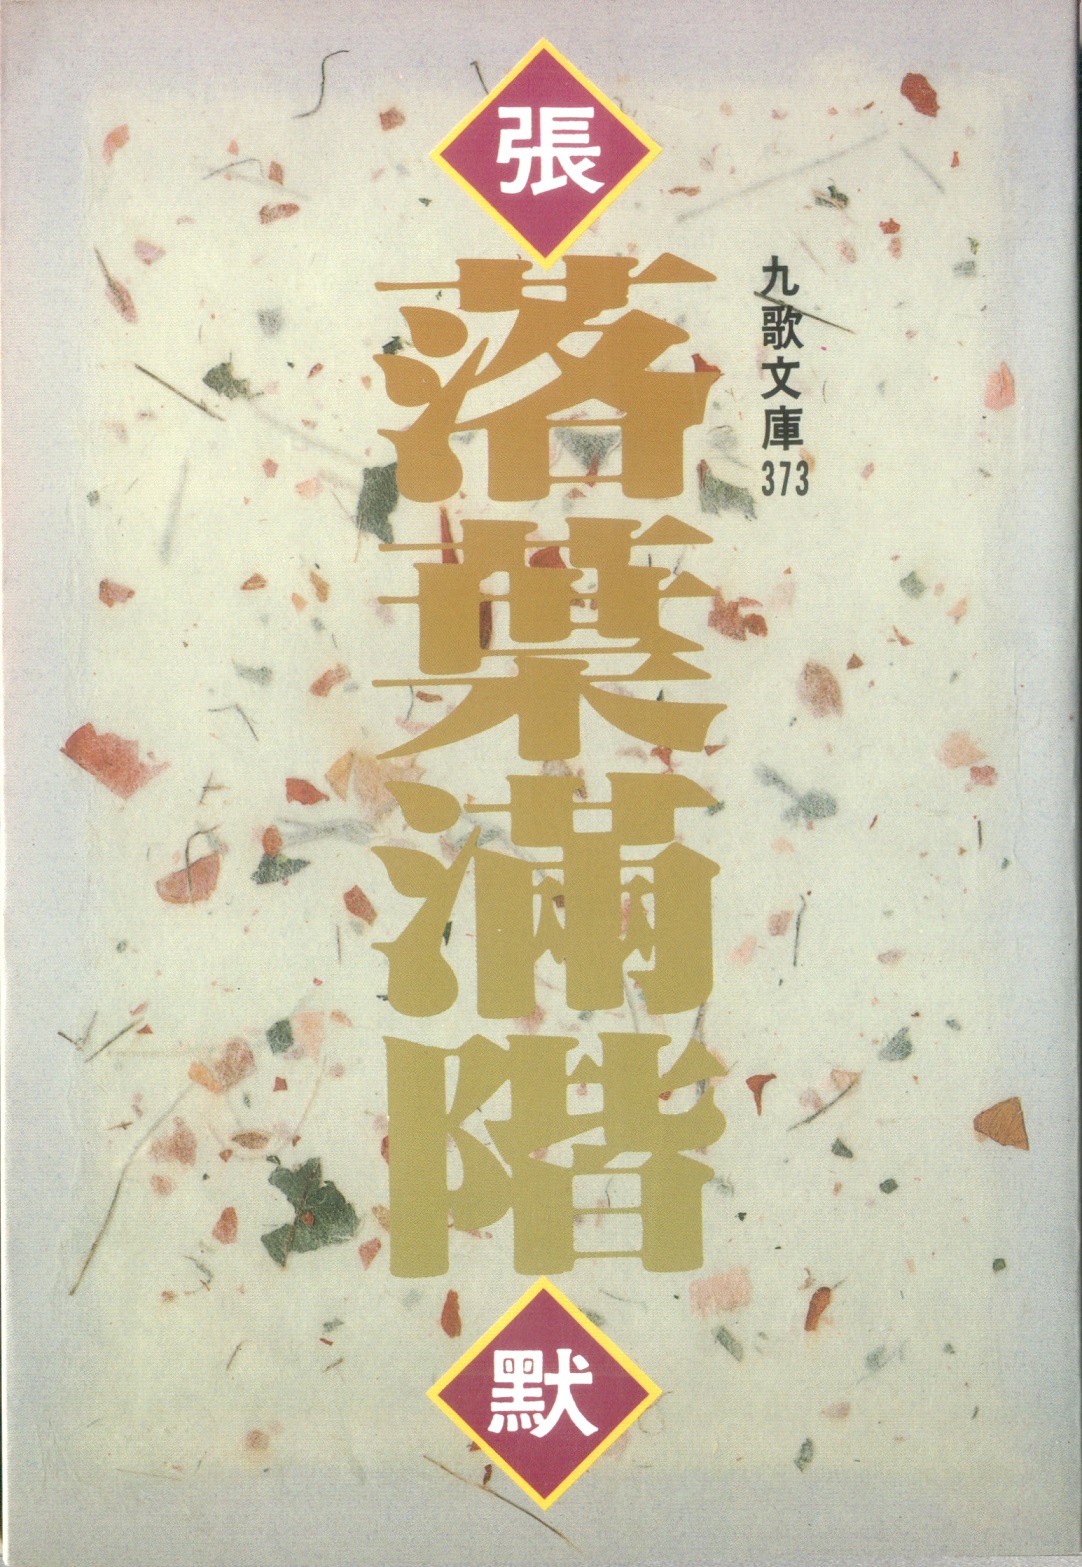 張
落葉滿階
默
九歌文庫
373